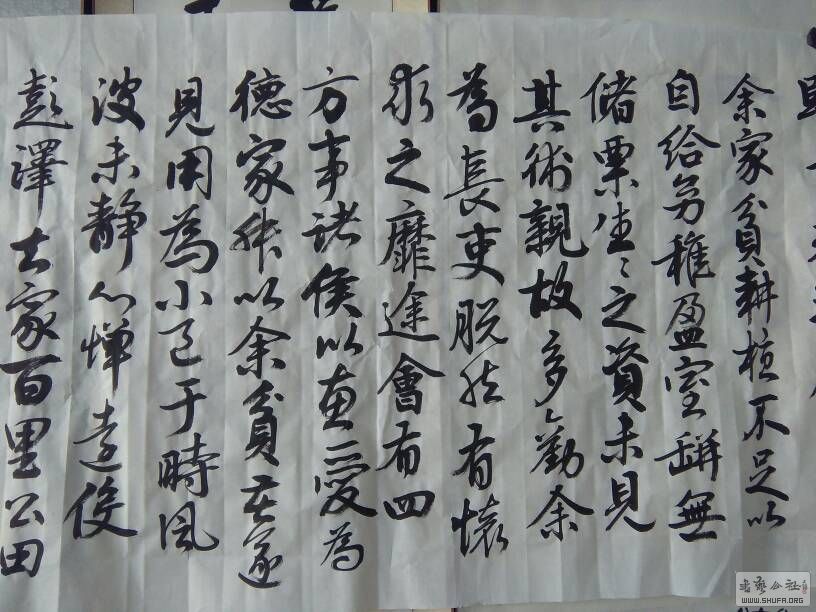 余家貧耕植不足以
自給幼稚盈室缾無
儲粟生々之資未見
其術親故多勸余
為長吏脫然有懷
求之靡途會有四
方事諸侯以惠愛為
德家叔以余貧苦遂
見用為小邑于時風
波未靜心憚遠役
彭澤去家百里公田
書藝公社
WWW.SHUFA.ORG